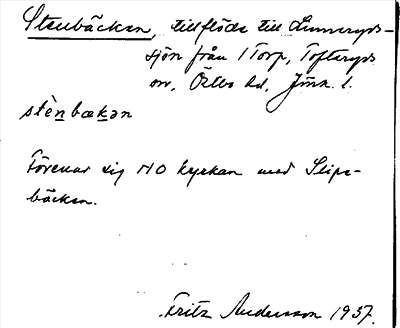 Stenbäcken, tillflöde till Linneryds-
sjön från 1 Torp, Tofteryds
sn, Östbo hd, Jönk. l.
stènbækən
Förenar sig NO kyrkan med Slips-
bäcken.
Fritz Andersson 1937.